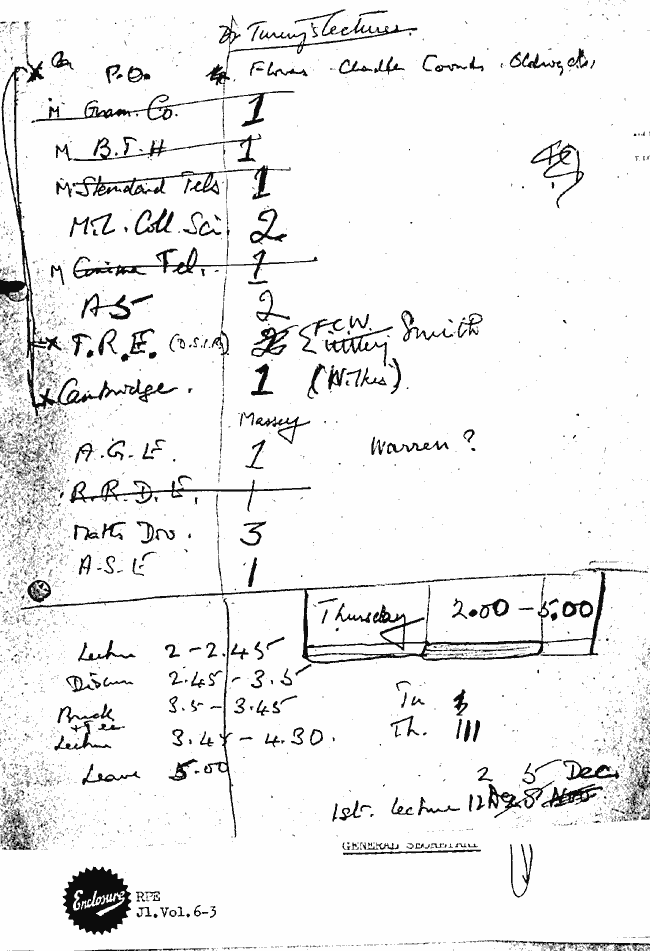 Dr Turing's Lectures.
P.O. Flowers Chandler Coombs
M Gram. Co. 1
M B.T.H 1
M Standard Tels 1
Mil. Coll. Sci. 2
M Tel. 1
A S 2
x T.R.E. (D.S.I.R) 2 F.C.W. Smith
x Cambridge. 1 (Wilkes)
Massey
A.G.E. 1 Warren ?
R.R.D.E. 1
Maths Div. 3
A.S.E 1
Thursday 2.00 - 5.00
Lecture 2 - 2.45
Discuss 2.45 - 3.5
Break + Tea 3.5 - 3.45
Lecture 3.45 - 4.30.
Leave 5.00
Tu
Th. III
2 5 Dec
1st. Lecture 12
GENERAL SECRETARY
Enclosure
RPE
J1.Vol.6-3